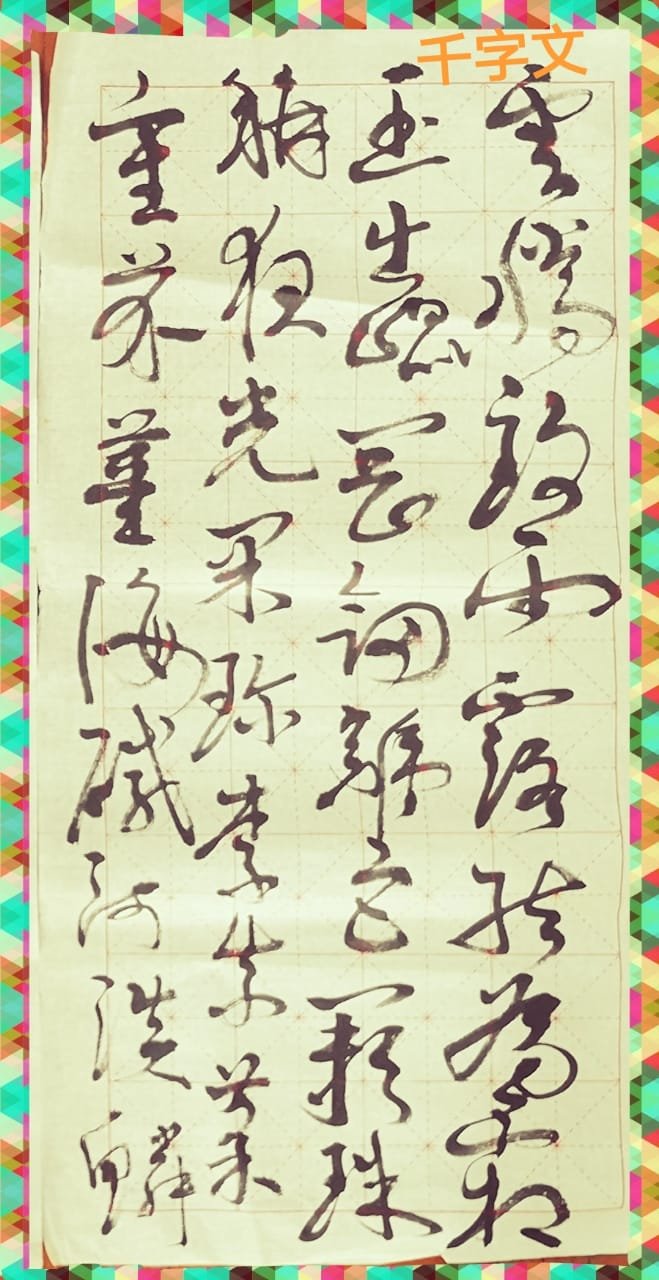 千字文
雲騰致雨露結為霜
玉出崑岡劍號巨闕珠
稱夜光果珍李柰菜
重芥薑海鹹河淡鱗